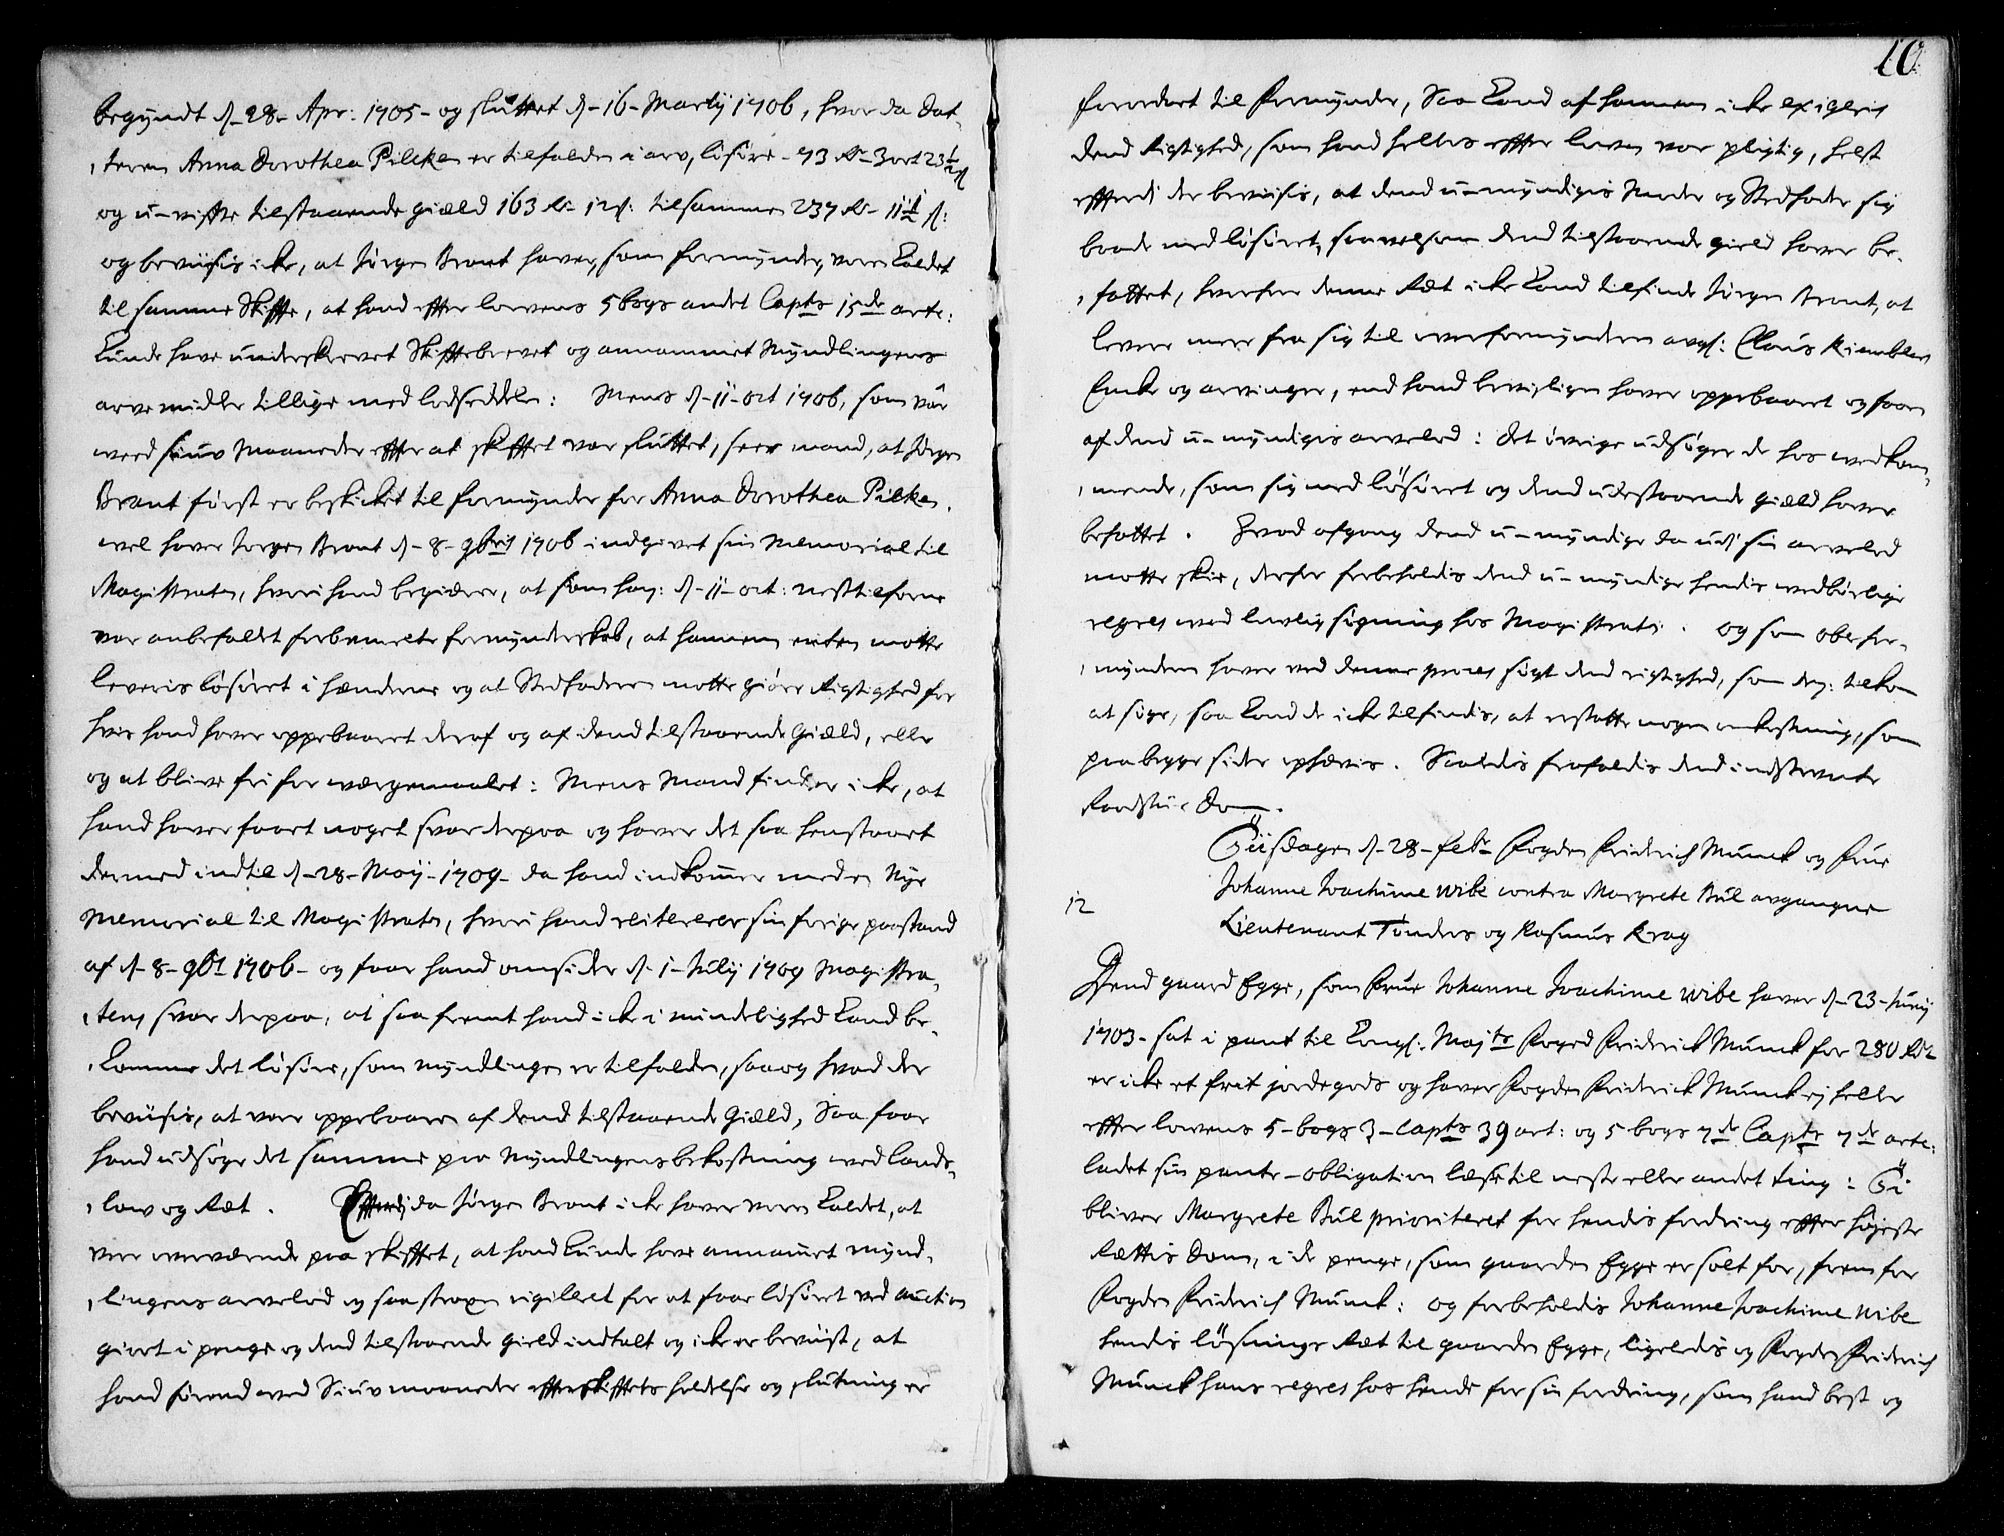 begyndt d. 28. Apr: 1705 og sluttet d. 16. Martij 1706, hvor da Dat-
teren Anna Dorothea Pilcken er tilfalden i arv, løsøre 73 Rd. 3 ort 23½ s
og u-visse tilstaaende giæld 163 Rd. 12 s: tilsammen 237 Rd. 11½ s:
og beviisis icke, at Jørgen Brant haver, som formynder, været kaldet
til samme Skiffte, at hand effter lowens 5 bogs andet Capts 15de arte:
kunde have underskrevet Skifftebrevet og annammet Myndlingens
arve midler tillige med lodseddelen: Mens d. 11. oct 1706, som var
ved siuv Maaneder effter at skifftet var sluttet, seer mand, at Jørgen
Brant først er beskicket til formynder for Anna Dorothea Pilken,
vel haver Jørgen Brant d. 8. 9bris 1706 indgivet sin Memorial til
Magistraten, hvori hand begiærer, at som ham: d. 11. oct: nest tilforne
var anbefallet forbemelte formynderskab, at hannem enten motte
leveris løsøret i hænderne og at Stedfaderen motte giøre Rigtighed for
hvis hand haver oppebaaret deraf og af dend tilstaaende Giæld, eller
og at blive fri for værgemaalet: Mens Mand finder icke, at
hand haver faaet noget svar derpaa og haver det saa henstaaet
dermed indtil d. 28. Maij 1709 da hand indkommer med en Nye
Memorial til Magistraten, hvori hand reitererer sin forige paastand
af d. 8. 9br 1706 og faar hand omsider d. 1. Julij 1709 Magistra-
tens svar derpaa, at saa fremt hand icke i mindelighed kand be-
komme det løsøre, som myndlingen er tilfalden, saa og hvad der
beviisis, at være oppebaaren af dend tilstaaende Giæld, Saa faar
hand udsøge det samme paa Myndlingens bekostning ved lands-
low og Ræt. Efftterdi da Jørgen Brant icke haver været kaldet, at
være overværende paa skifftet, at hand kunde have annammet mynd-
lingens arvelod og saa straxen vigileret for at faae løsøret ved auction
giort i penge og dend tilstaaende gield indtalt og icke er beviist, at
hand førend ved Siuv maaneder effter skifftets holdelse og slutning er
10
forordnet til formynder, Saa kand af hannem icke exigeris
dend Rigtighed, som hand hellers effter lowen var pligtig, helst
effterdi der beviisis, at dend u-myndigis Moder og Stedfader sig
baade med løsøret, saavelsom dend tilstaaende gield haver be-
fattet, hvorfore denne Ræt icke kand tilfinde Jørgen Brant, at
levere mere fra sig til overformynderen avgl: Claus
Encke og arvinger, end hand beviisligen haver oppebaaret og faaet
af dend u-myndigis arvelod: Det øvrige udsøger de hos vedkom-
mende, som sig med løsøret og dend udestaaende giæld haver
befattet. Hvad afgang dend u-myndige da udi sin arvelod
motte skee, derfor forbeholdis dend u-myndige hendis vedbørlige
regres ved lowlig søgning hos Magistraten. og som oberfor-
mynderen haver ved denne proces søgt dend rigtighed, som dem: tilkom
at søge, saa kand de icke tilfindis, at erstatte nogen omkostning, som
paa begge sider ophævis. Saaledis frafaldis dend indstevnte
Raadstue Dom.
Tiisdagen d. 28. febr. Fogden Friderich Munck og Frue
Johanne Joachime Wibe contra Margrete Bul avgangne
12
Lieutenant Tønders og Rasmus Krag
Dend gaard Egge, som Frue Johanne Joachime Wibe haver d. 23. Junij
1703 sat i pant til Kongl: Majts Foged Friderick Munck for 280 Rdr
er icke et frit jordegods og haver Fogden Friderick Munck ej heller
effter lowens 5 bogs 3 Capts 39 art: og 5 bogs 7de Capts 7de arte:
ladet sin pante-obligation læse til neste eller andet ting: Ti
bliver Margrete Bul prioriteret for hendis fordring effter høyeste
Rættis Dom, i de penge, som gaarden Egge er solt for, frem for
Fogden Friderich Munck: og forbeholdis Johanne Joachime Wibe
hendis løsnings Ræt til gaarden Egge, ligeledis og Fogden Friderich
Munck hans regres hos hende for sin fordring, som hand best og